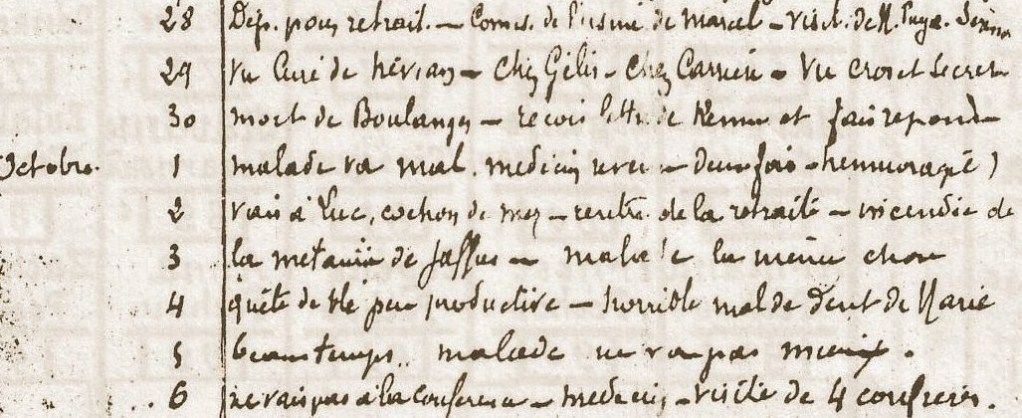 28 Dép. pour retrait. – Comis. de l'usine de Marcel – visit. de M. Puge.
29 Vu Curé de – chez Gélis – chez Carrière – Vu Cros et secret
30 mort de Boulanger – reçois lettre de et fais repond
Octobre. 1 malade va mal. medecin – deux fois – hemmoragie)
2 vais à Luc, cochon de mer – rentre de la retraite – incendie de
3 la metairie de Jaffus – malade la même chose
4 quête de blé peu productive – horrible mal de dent de Marie
5 beau temps. malade ne va pas mieux.
6 ne vais pas à la conference – medecin – visite de 4 confreres.